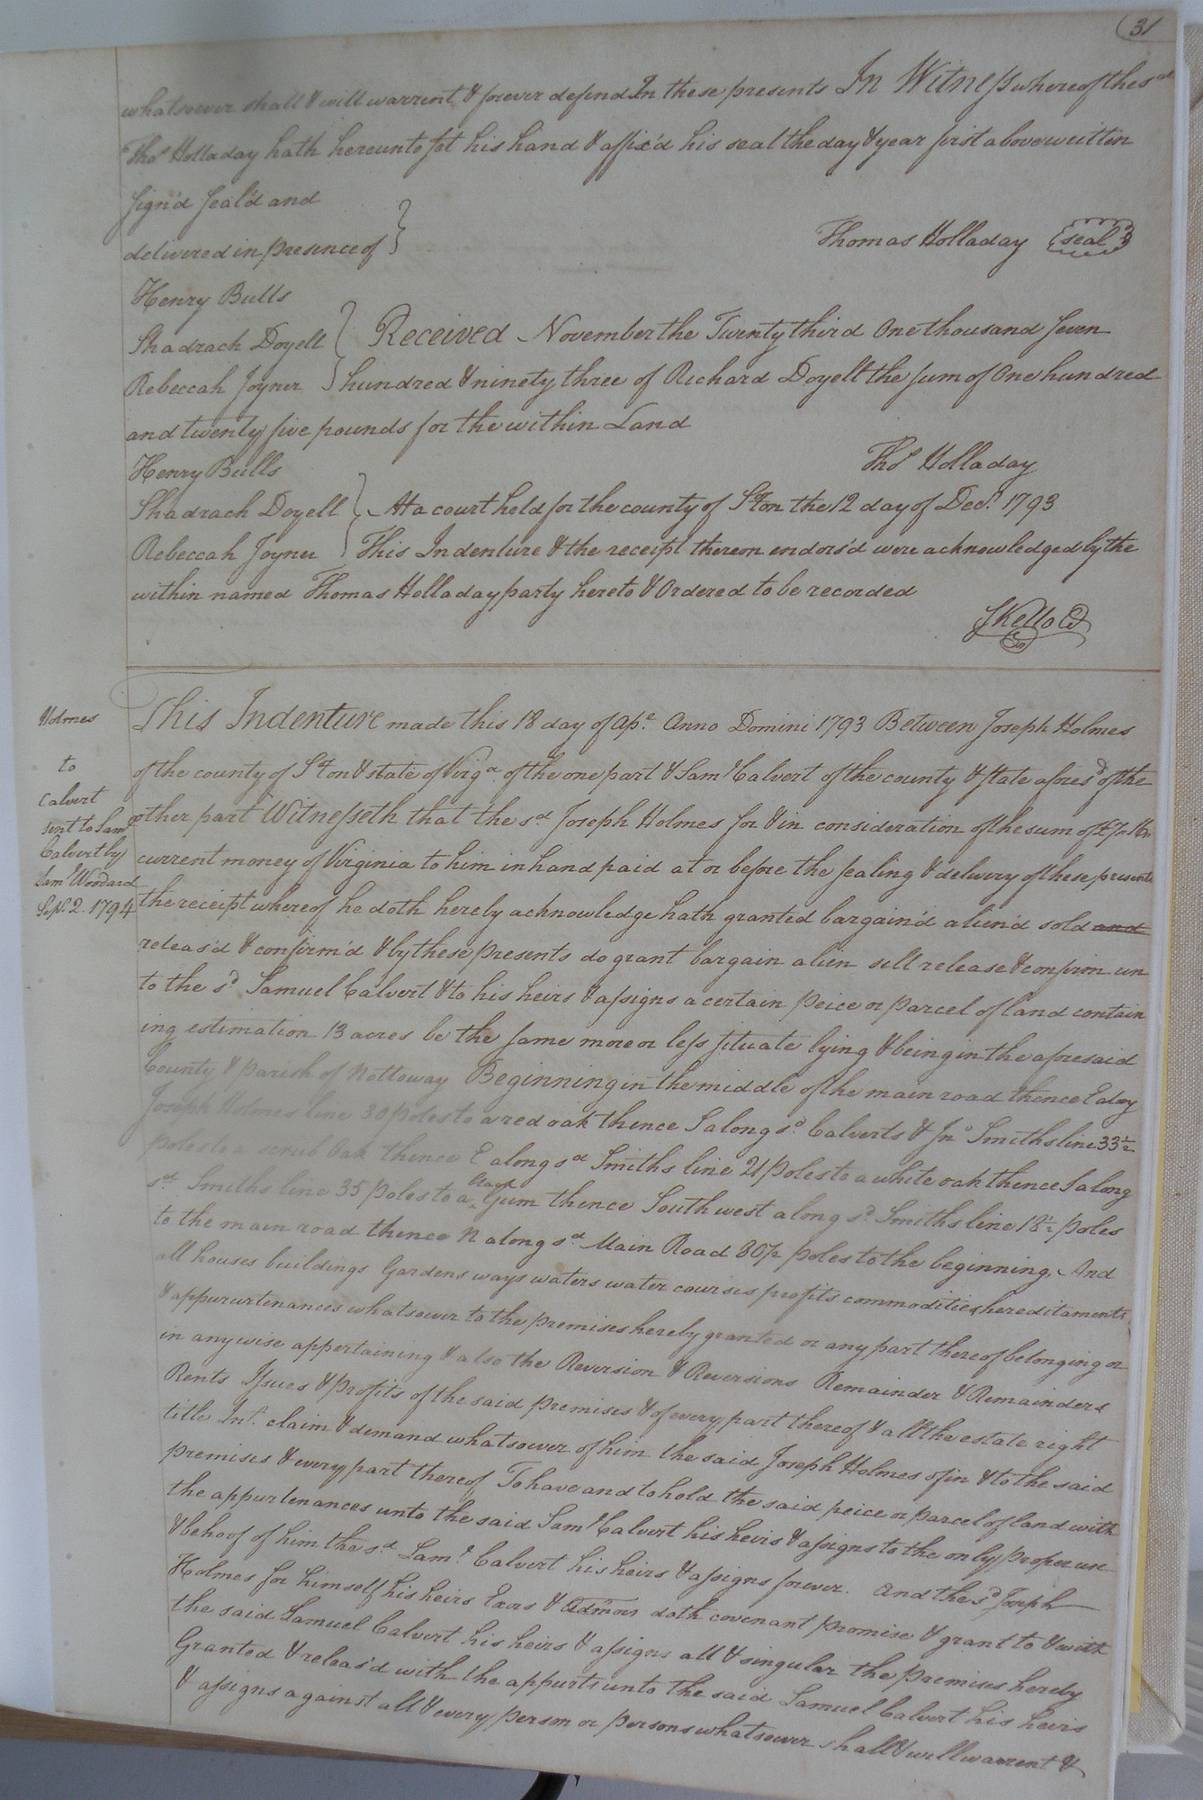 31
whatsoever shall & will warrent & forever defend In these presents In Witness whereof the sd
Thos Holladay hath hereunto set his hand & affix'd his seal the day & year first above written
Sign'd Seal'd and
delivered in presence of
Thomas Holladay seal
Henry Bulls
Shadrach Doyell Received November the Twenty third One thousand Seven
Rebeccah Joyner hundred & ninety three of Richard Doyell the sum of One hundred
and twenty five pounds for the within Land
Henry Bulls Thos Holladay
Shadrach Doyell At a court held for the county of Ston the 12 day of Decr 1793
Rebeccah Joyner This Indenture & the receipt thereon endors'd were acknowledged by the
within named Thomas Holladay party hereto & Ordered to be recorded
SKello
Holmes
to
Calvert
sent to Saml
Calvert by
Saml Woodard
Sept. 2. 1794
This Indenture made this 18 day of Apl. Anno Domini 1793 Between Joseph Holmes
of the county of Ston & state of Virga of the one part & Saml Calvert of the county & state aforesd of the
other part Witnesseth that the sd Joseph Holmes for & in consideration of the sum of
current money of Virginia to him in hand paid at or before the sealing & delivery of these presents
the receipt whereof he doth hereby acknowledge hath granted bargain'd alien'd sold and
releas'd & confirm'd & by these presents do grant bargain alien sell release & confirm un
to the sd Samuel Calvert & to his heirs & assigns a certain peice or parcel of land contain
ing estimation 13 acres be the same more or less situate lying & being in the aforesaid
County & Parish of Nottoway Beginning in the middle of the main road thence E along
Joseph Holmes line 30 poles to a red oak thence S along sd Calverts & Jno Smiths line 33½
poles to a scrub Oak thence E along sd Smiths line 21 poles to a white oak thence S along
sd Smiths line 35 poles to a Gum thence South west along sd Smiths line 18½ poles
to the main road thence N along sd Main Road 80½ poles to the beginning. And
all houses buildings Gardens ways waters water courses profits commodities hereditaments
& appururtenances whatsoever to the premises hereby granted or any part thereof belonging or
in any wise appertaining & also the Reversion & Reversions Remainder & Remainders
Rents Issues & profits of the said premises & of every part thereof & all the estate right
title Int. claim & demand whatsoever of him the said Joseph Holmes of in & to the said
premises & every part thereof To have and to hold the said peice or parcel of land with
the appurtenances unto the said Saml Calvert his heirs & assigns to the only proper use
& behoof of him the sd Saml Calvert his heirs & assigns forever. And the sd Joseph
Holmes for himself his heirs Exors & Admors doth covenant promise & grant to & with
the said Samuel Calvert his heirs & assigns all & singular the premises hereby
Granted & releas'd with the appurts unto the said Samuel Calvert his heirs
& assigns against all & every person or persons whatsoever shall & will warrent &